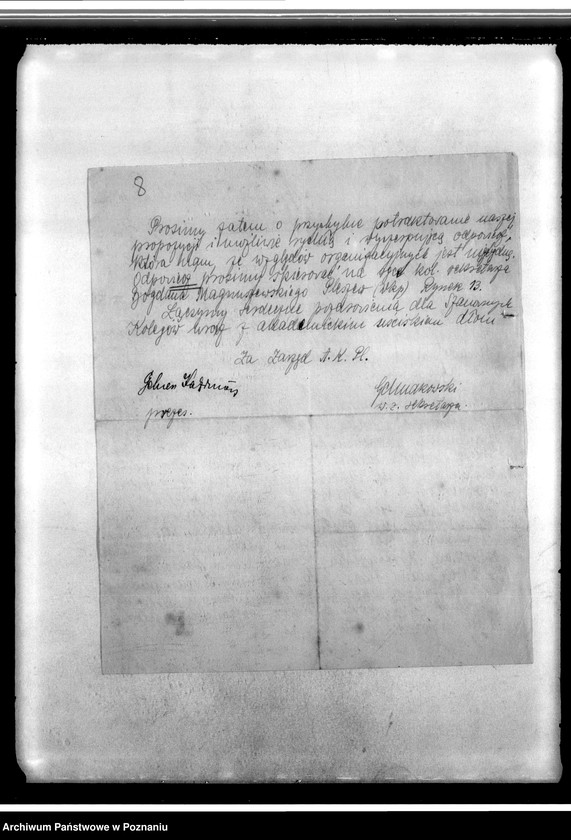 8
Prosimy zatem o przychylne potraktowanie naszej
propozycji i możliwie rychłą i wyczerpującą odpowiedź,
która nam ze względów organizacyjnych jest
Odpowiedź prosimy skierować na ręce kol. sekretarza
Bogdana Magnuszewskiego Rynek 13.
Łączymy serdeczne pozdrowienia dla Szanownych
Kolegów wraz z akademickim uściskiem dłoni
Za Zarząd A. K. Pl.
prezes.
w. z. sekretarza.
Archiwum Państwowe w Poznaniu